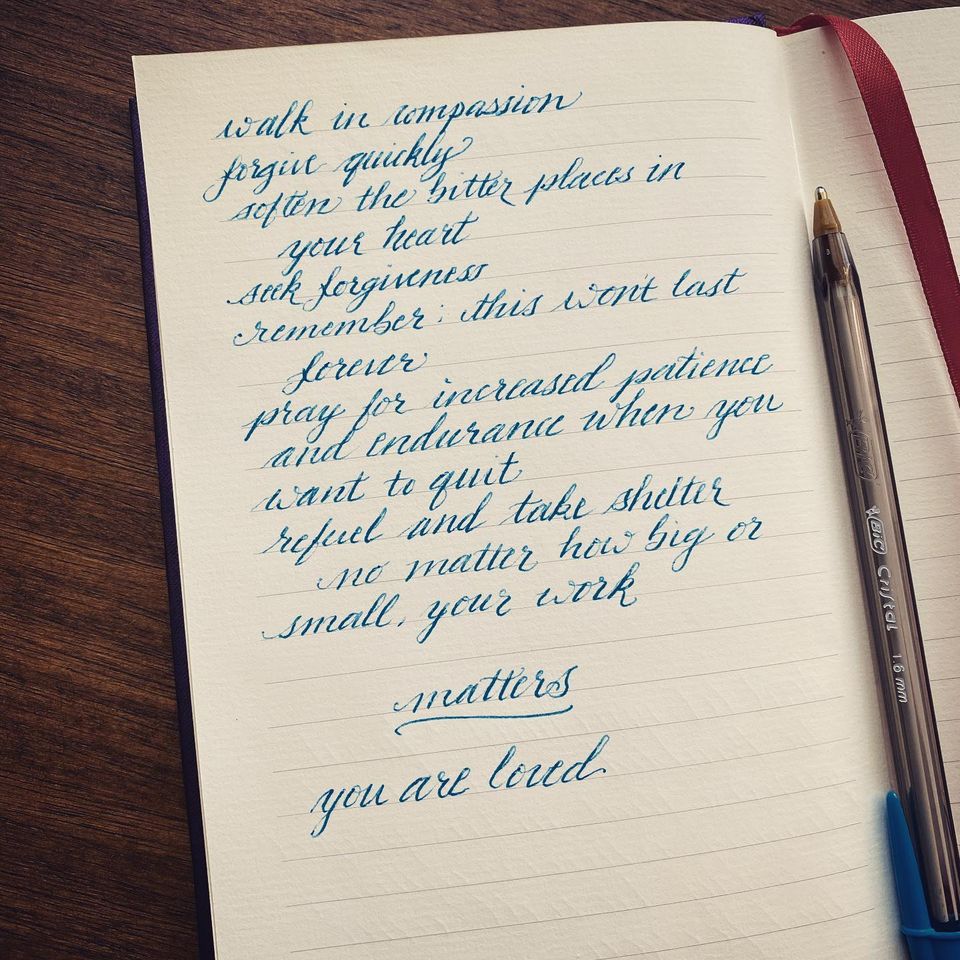 walk in compassion
forgive quickly
soften the bitter places in
your heart
seek forgiveness
remember; this won't last
forever
pray for increased patience
and endurance when you
want to quit
refuel and take shelter
no matter how big or
small, your work
matters
you are loved
BIC Cristal 1.6 mm